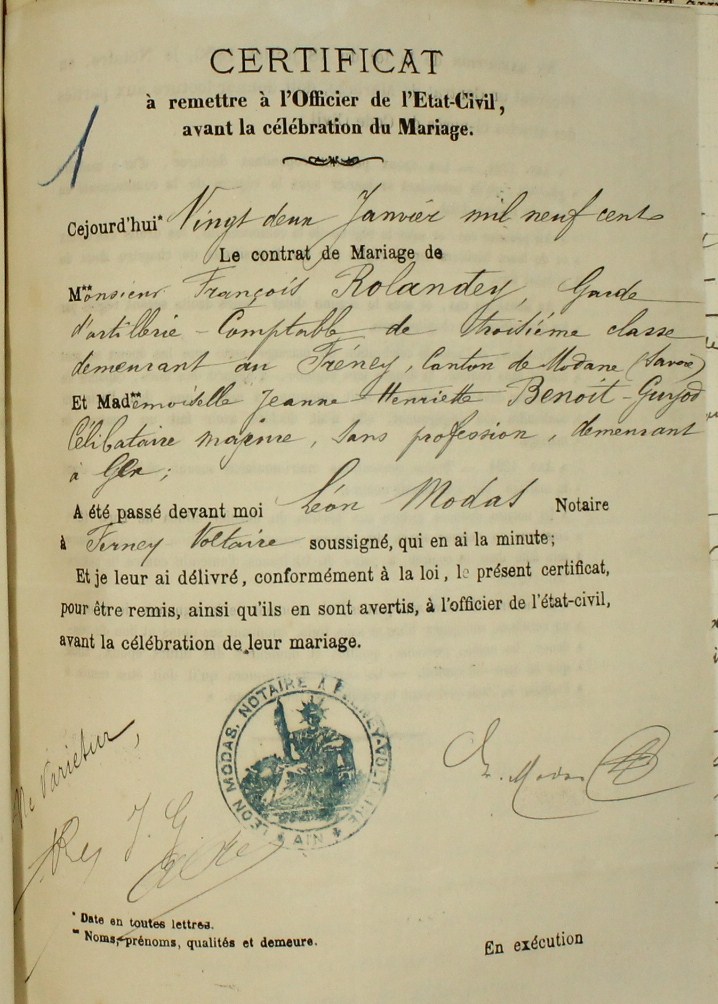 CERTIFICAT
à remettre à l'Officier de l'Etat-Civil,
avant la célébration du Mariage.
1
Cejourd'hui* Vingt deux Janvier mil neuf cent
Le contrat de Mariage de
M**onsieur François Rolandey, Garde
d'artillerie - Comptable de troisième classe
demeurant au Fréney, Canton de Modane (Savoie)
Et Mad**emoiselle Jeanne Henriette Benoît-Guyod
Célibataire majeure, sans profession, demeurant
à Gex;
A été passé devant moi Léon Modas Notaire
à Ferney Voltaire soussigné, qui en ai la minute;
Et je leur ai délivré, conformément à la loi, le présent certificat,
pour être remis, ainsi qu'ils en sont avertis, à l'officier de l'état-civil,
avant la célébration de leur mariage.
LÉON MODAS, NOTAIRE A FERNEY-VOLTAIRE
AIN
Ne Varietur,
L. Modas
* Date en toutes lettres.
** Noms, prénoms, qualités et demeure.
En exécution